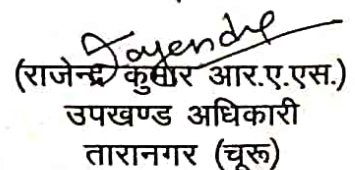 Rajendre
(राजेन्द्र कुमार आर.ए.एस.)
उपखण्ड अधिकारी
तारानगर (चूरू)